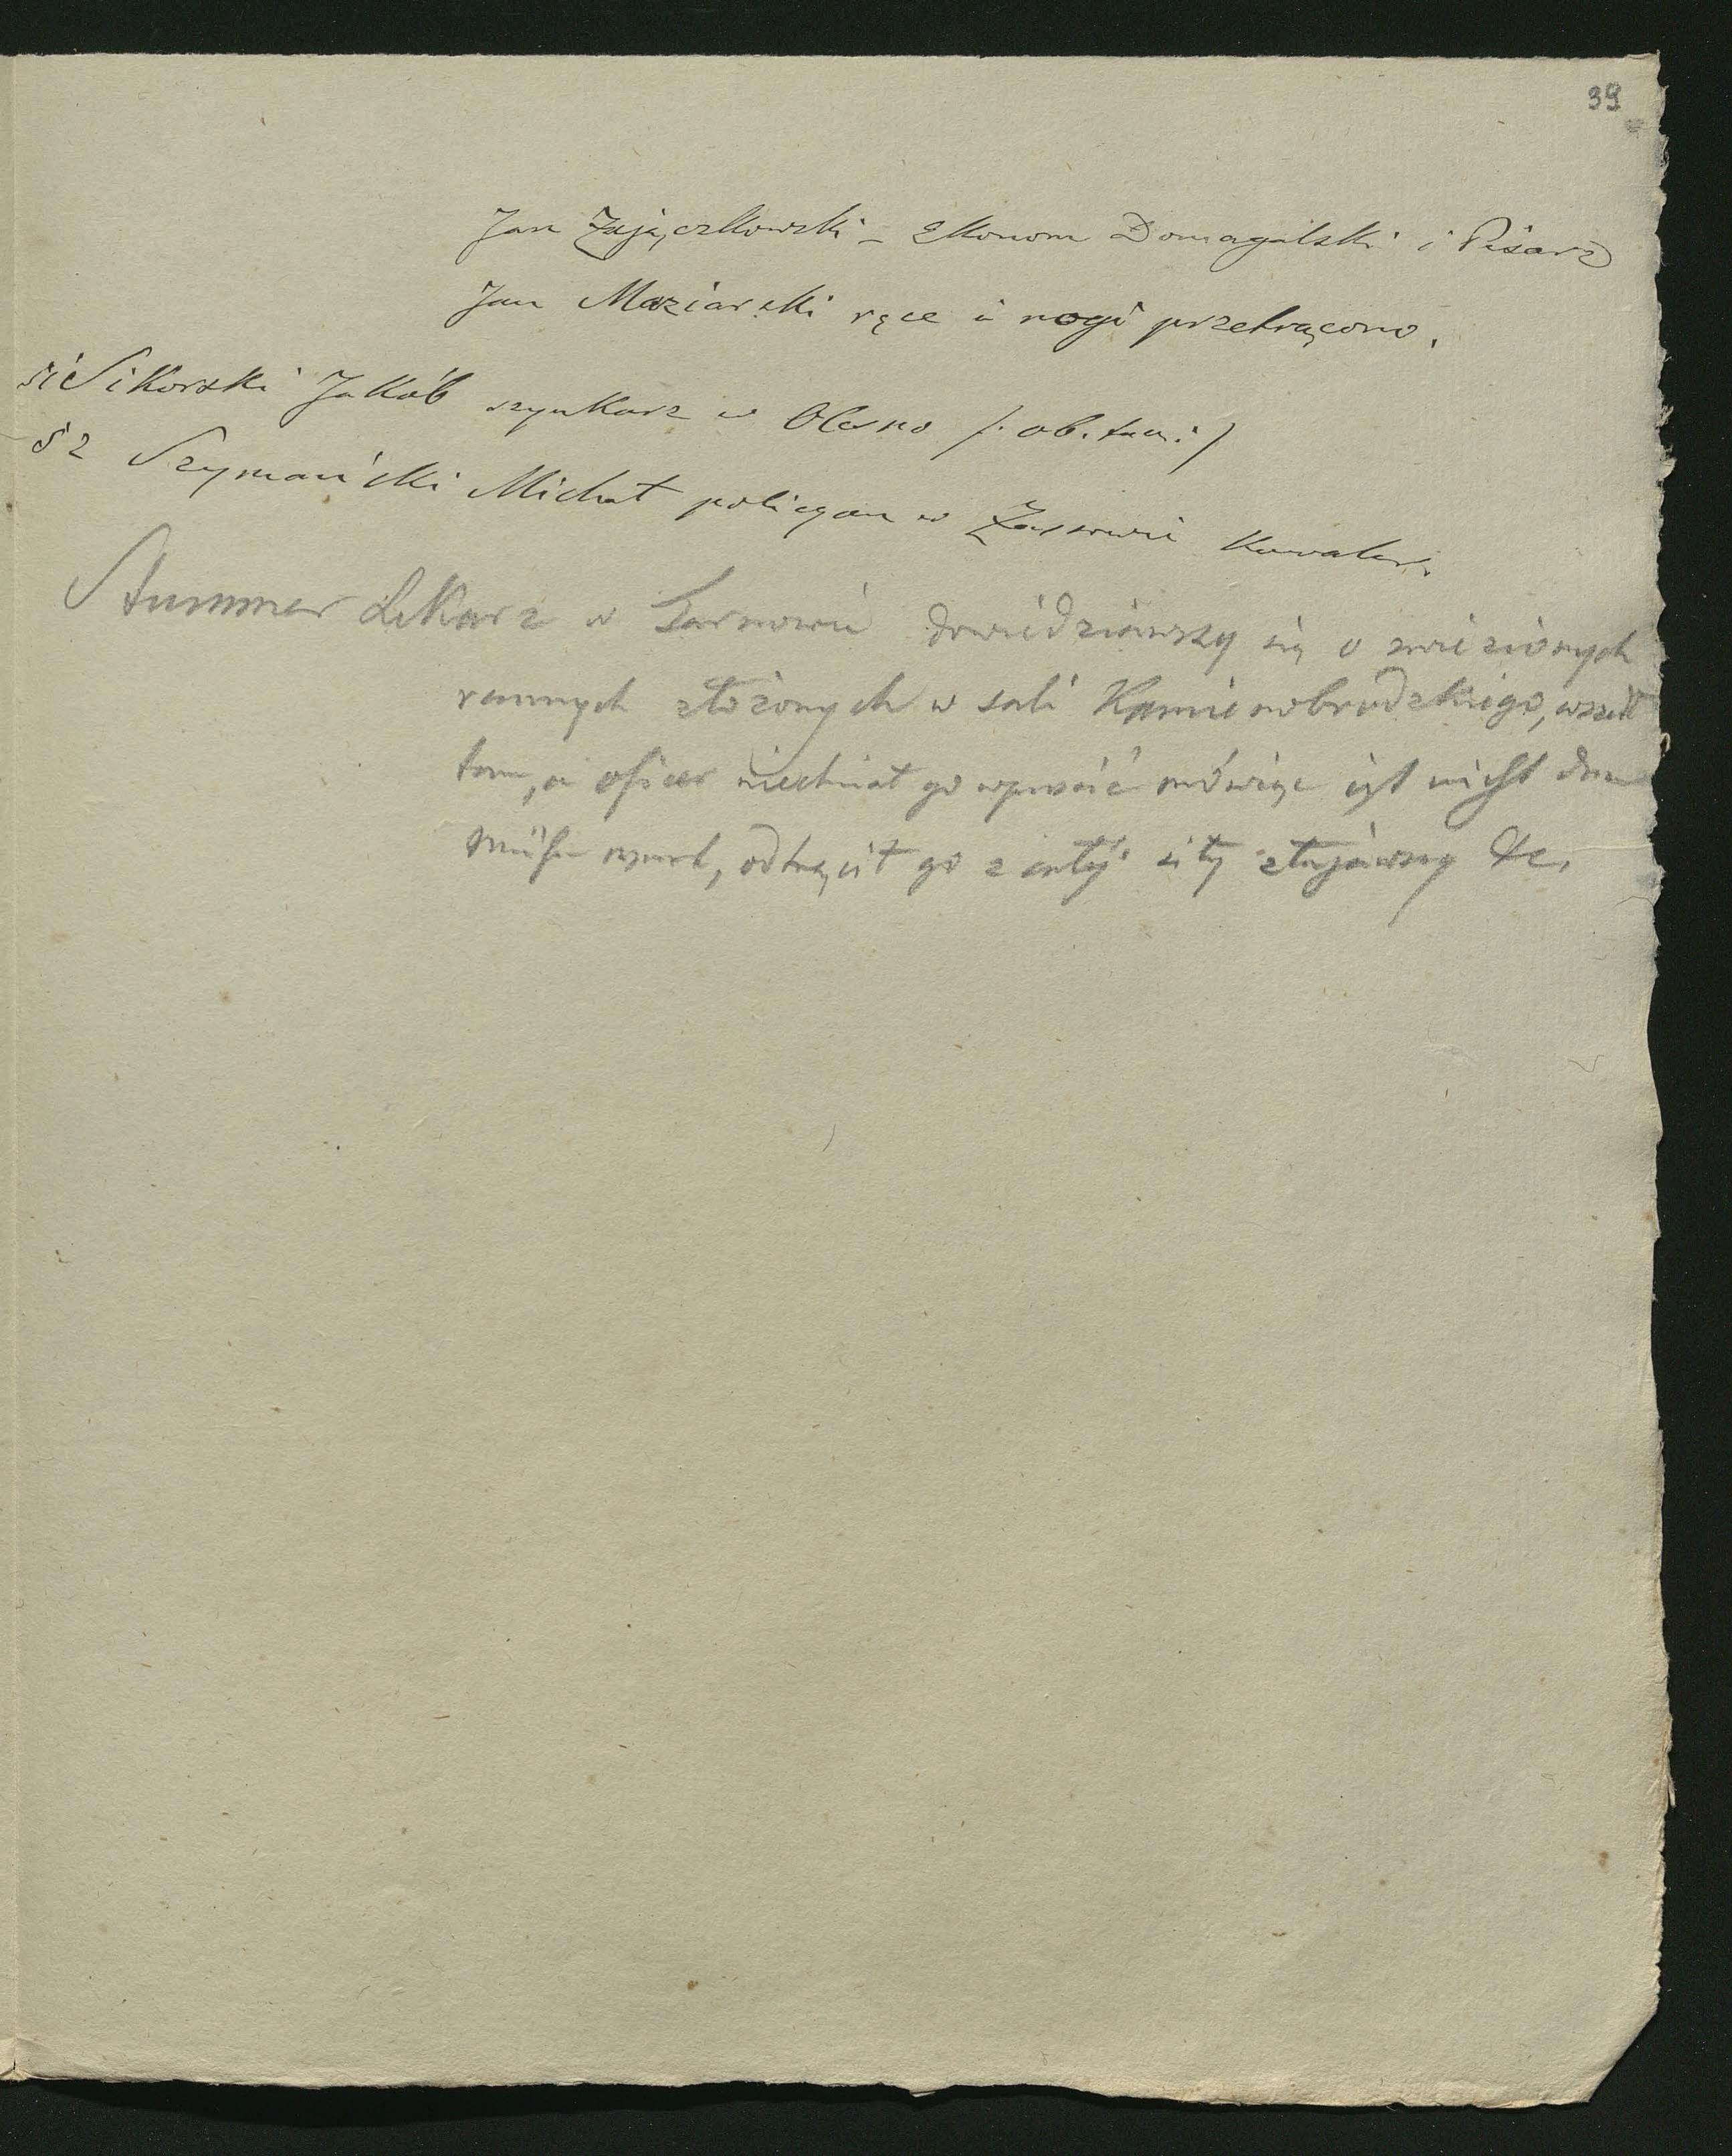 39
Jan Zajączkowski – Ekonom Domagalski i Pisarz
Jan Maziarski ręce i nogi przetrącono.
51 Sikorski Jakób szynkarz w Olesno /: ob. tam :/
52 Szymański Michał policyan w Kawaler.
Stummer Lekarz w Tarnowie dowiedziawszy się o zwiezionych
rannych złożonych w sali Kamienobrodzkiego, wszedł
tam, a oficer niechciał go wpuścić mówiąc ist nicht
odtrącił go z całej siły złajawszy &c.